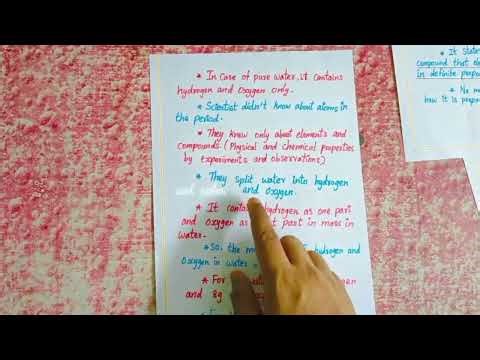 * In case of pure water, it contains
hydrogen and oxygen only.
* Scientist didn't know about atoms in
the period.
* They knew only about elements and
compounds. (Physical and chemical properties
by experiments and observations)
* They split water into hydrogen
and oxygen.
* It conta hydrogen as one part
and oxygen as t part in mass in
water.
* So, the m hydrogen and
oxygen in water
* For gen
and 8g
* It state
compound that el
in definite propo
* No ma
how it is prepa